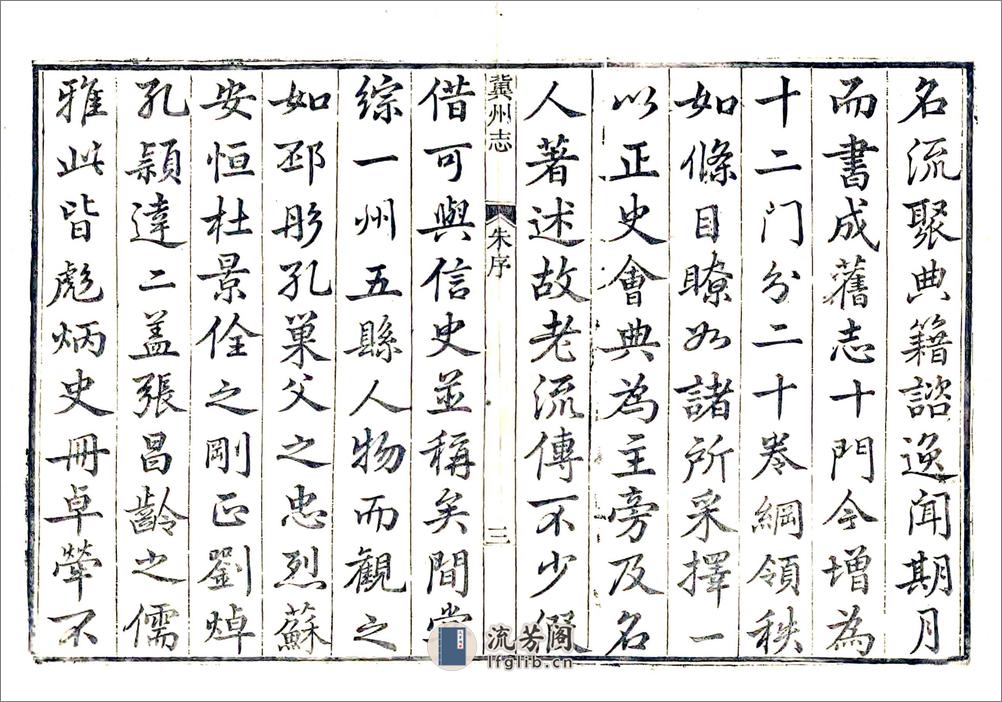 名流聚典籍諮逸聞期月
而書成舊志十門今增為
十二門分二十卷綱領秩
如條目瞭如諸所采擇一
以正史會典為主旁及名
人著述故老流傳不少假
冀州志
朱序
三
借可與信史並稱矣間嘗
綜一州五縣人物而觀之
如邳彤孔巢父之忠烈蘇
安恒杜景佺之剛正劉焯
孔穎達二蓋張昌齡之儒
雅此皆彪炳史冊卓犖不
流芳閣
lfglib.cn